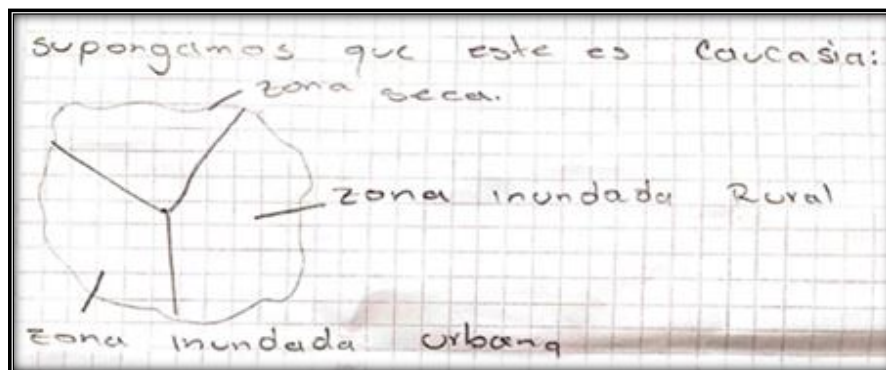 supongamos que este es Caucasia:
zona seca.
zona inundada Rural
zona inundada urbana